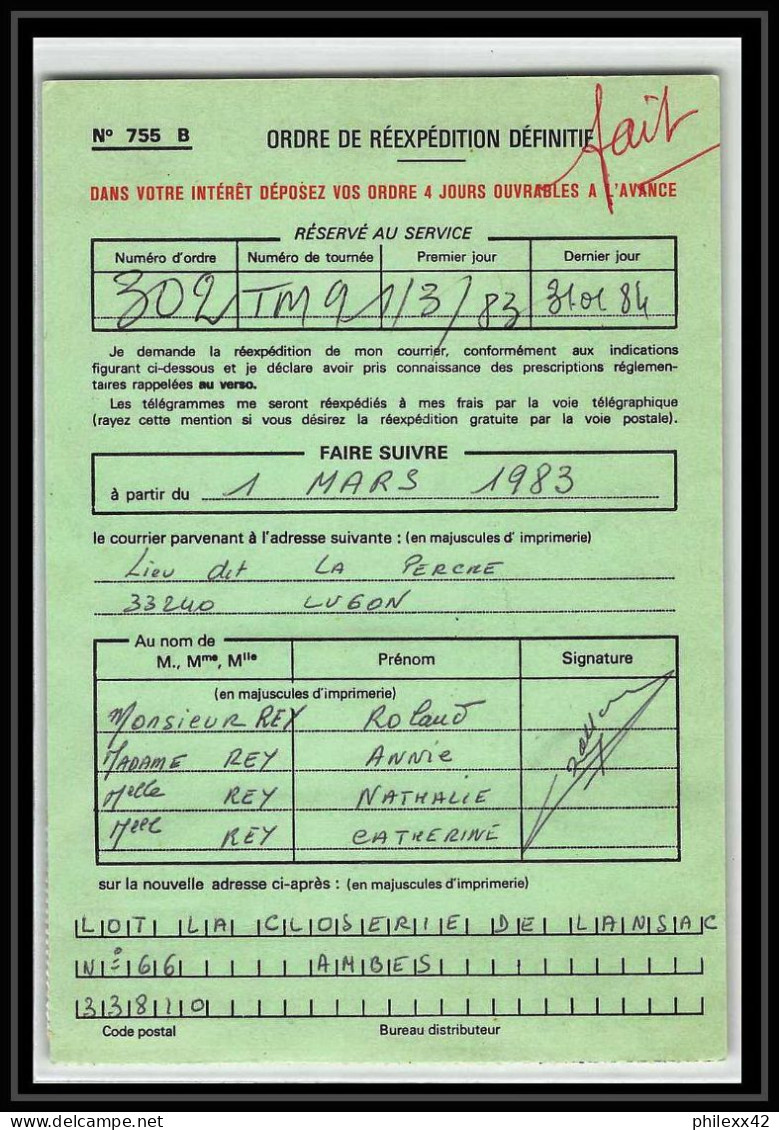 fait
Nº 755 B ORDRE DE RÉEXPÉDITION DÉFINITIF
DANS VOTRE INTÉRÊT DÉPOSEZ VOS ORDRE 4 JOURS OUVRABLES A L'AVANCE
RÉSERVÉ AU SERVICE
Numéro d'ordre Numéro de tournée Premier jour Dernier jour
302 TM9 1/3/83 31 01 84
Je demande la réexpédition de mon courrier, conformément aux indications
figurant ci-dessous et je déclare avoir pris connaissance des prescriptions réglemen-
taires rappelées au verso.
Les télégrammes me seront réexpédiés à mes frais par la voie télégraphique
(rayez cette mention si vous désirez la réexpédition gratuite par la voie postale).
FAIRE SUIVRE
à partir du 1 MARS 1983
le courrier parvenant à l'adresse suivante : (en majuscules d' imprimerie)
Lieu dit LA PERCHE
33240 LUGON
Au nom de
M., Mme, Mlle Prénom Signature
(en majuscules d'imprimerie)
Monsieur REY Roland
MADAME REY ANNIE
Melle REY NATHALIE
Mell REY CATHERINE
sur la nouvelle adresse ci-après : (en majuscules d'imprimerie)
LOT LA CLOSERIE DE LANSAC
N° 66 AMBES
33810
Code postal Bureau distributeur
delcampe.net
philexx42